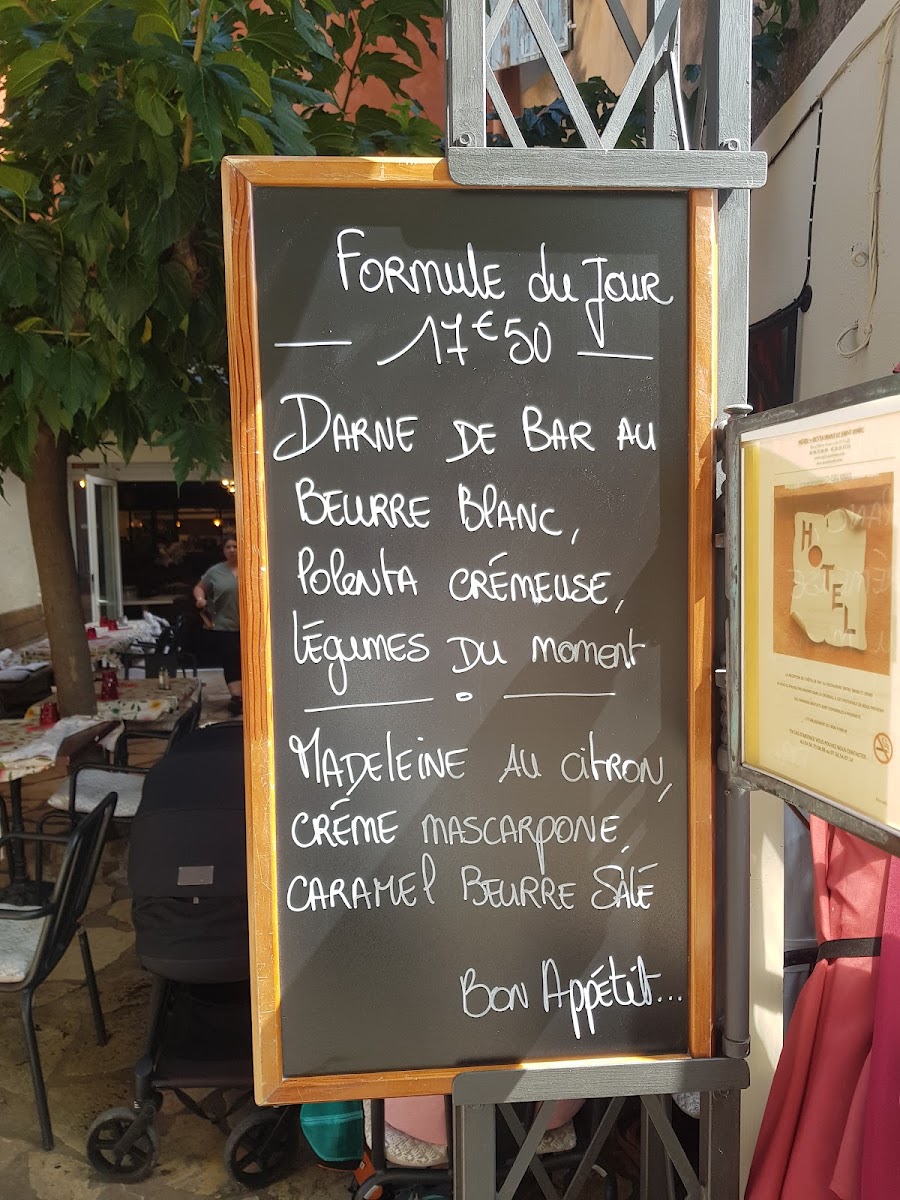 Formule du Jour
17€50
Darne de Bar au
Beurre Blanc,
Polenta crémeuse,
Légumes du moment
Madeleine au citron,
crème mascarpone,
caramel Beurre Salé
Bon Appétit...
HOTEL